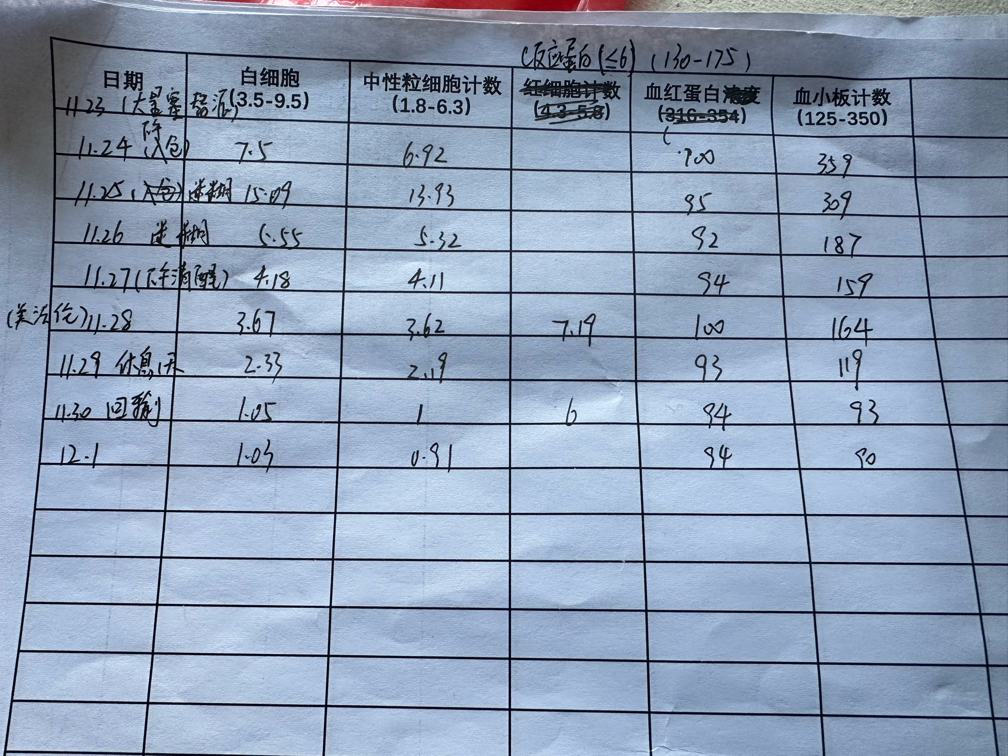 C反应蛋白(≤6) (130-175)
日期 白细胞 中性粒细胞计数 红细胞计数 血红蛋白浓度 血小板计数
(3.5-9.5) (1.8-6.3) (4.3-5.8) (316-354) (125-350)
11.23 (大量塞替派)
11.24 7.5 6.92 100 359
11.25 迷糊 15.09 13.93 95 309
11.26 迷糊 5.55 5.32 92 187
11.27 (下午清醒) 4.18 4.11 94 159
(美法仑) 11.28 3.67 3.62 7.19 100 164
11.29 休息1天 2.33 2.19 93 119
11.30 回输 1.05 1 6 94 93
12.1 1.03 0.91 94 90